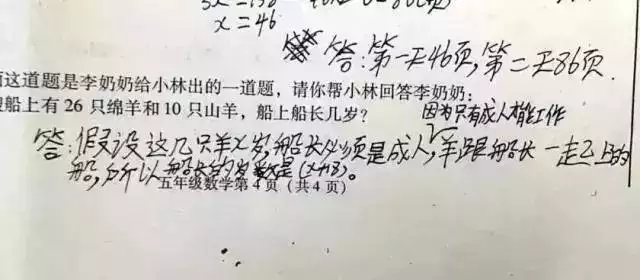 x=46
答:第一天46页,第二天86页.
这道题是李奶奶给小林出的一道题，请你帮小林回答李奶奶:
船上有 26 只绵羊和 10 只山羊，船上船长几岁？
因为只有成人才能工作
答:假设这几只羊X岁,船长必须是成人,羊跟船长一起上的
船,所以船长的岁数是(x+18)。
五年级数学第 4 页（共 4 页）